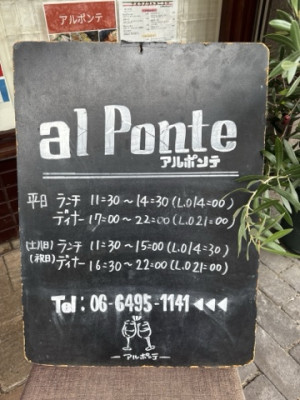 アルポンテ
al Ponte
アルポンテ
平日 ランチ 11=30～14=30(L.O14=00)
ディナー 17=00～22=00(L.O21=00)
(土)(日) ランチ 11=30～15=00(L.O14=30)
(祝日) ディナー 16=30～22=00(L.O21=00)
Tel: 06-6495-1141
アルポンテ